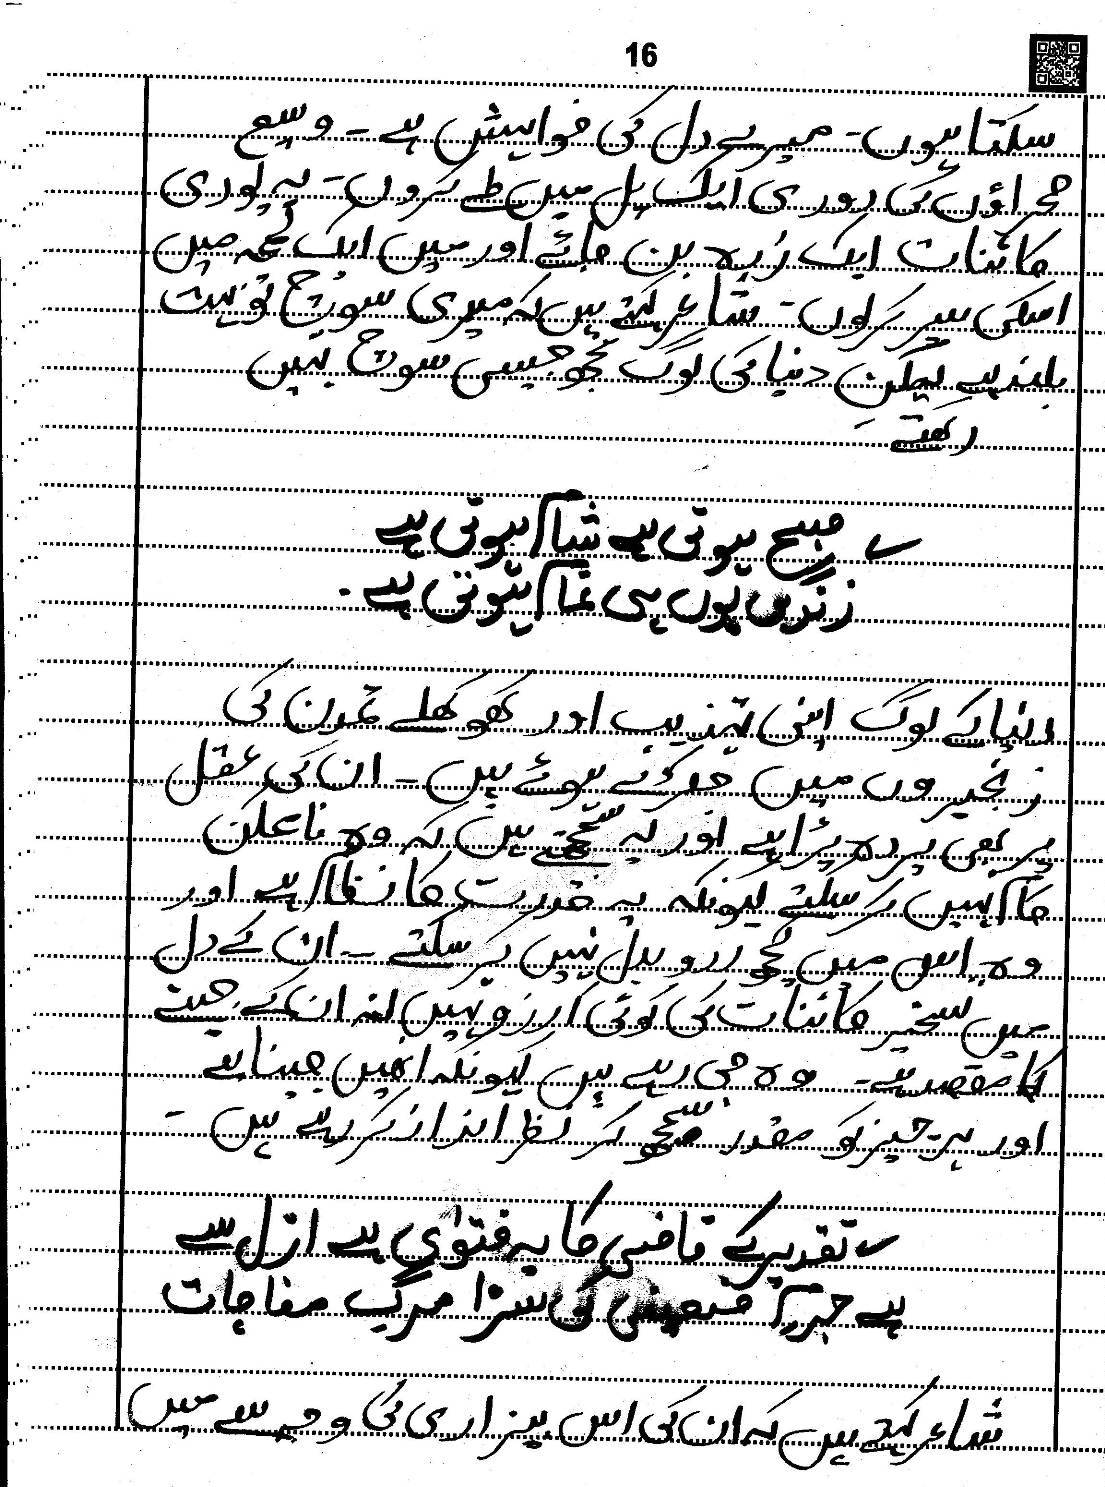 16
سکتا ہوں۔ میرے دل کی خواہش ہے۔ وسیع
صحراؤں کی دوری ایک پل میں طے کروں۔ یہ پوری
کائنات ایک ذرہ بن جائے اور میں ایک لمحہ میں
اسکی سیر کرلوں۔ شاعر کہتے ہیں کہ میری سوچ تو بہت
بلند ہے لیکن دنیا کی لوگ مجھ جیسی سوچ نہیں
رکھتے
صبح ہوتی ہے شام ہوتی ہے
زندگی یوں ہی تمام ہوتی ہے۔
دنیا کے لوگ اپنی تہذیب اور کھوکھلے تمدن کی
زنجیروں میں جکڑے ہوئے ہیں۔ ان کی عقل
پر بھی پردہ پڑا ہے اور یہ سمجھتے ہیں کہ وہ ناممکن
کام نہیں کر سکتے کیونکہ یہ قدرت کا نظام ہے اور
وہ اس میں کچھ ردوبدل نہیں کر سکتے۔ ان کے دل
میں تسخیر کائنات کی کوئی آرزو نہیں نہ ان کے جینے
کا مقصد ہے۔ وہ جی رہے ہیں کیونکہ انہیں جینا ہے
اور ہر چیز کو مقدر سمجھ کر نظر انداز کر رہے ہیں۔
تقدیر کے قاضی کا یہ فتویٰ ہے ازل سے
ہے جرم ضعیفی کی سزا مرگ مفاجات
شاعر کہتے ہیں کہ ان کی اس بیزاری کی وجہ سے میں